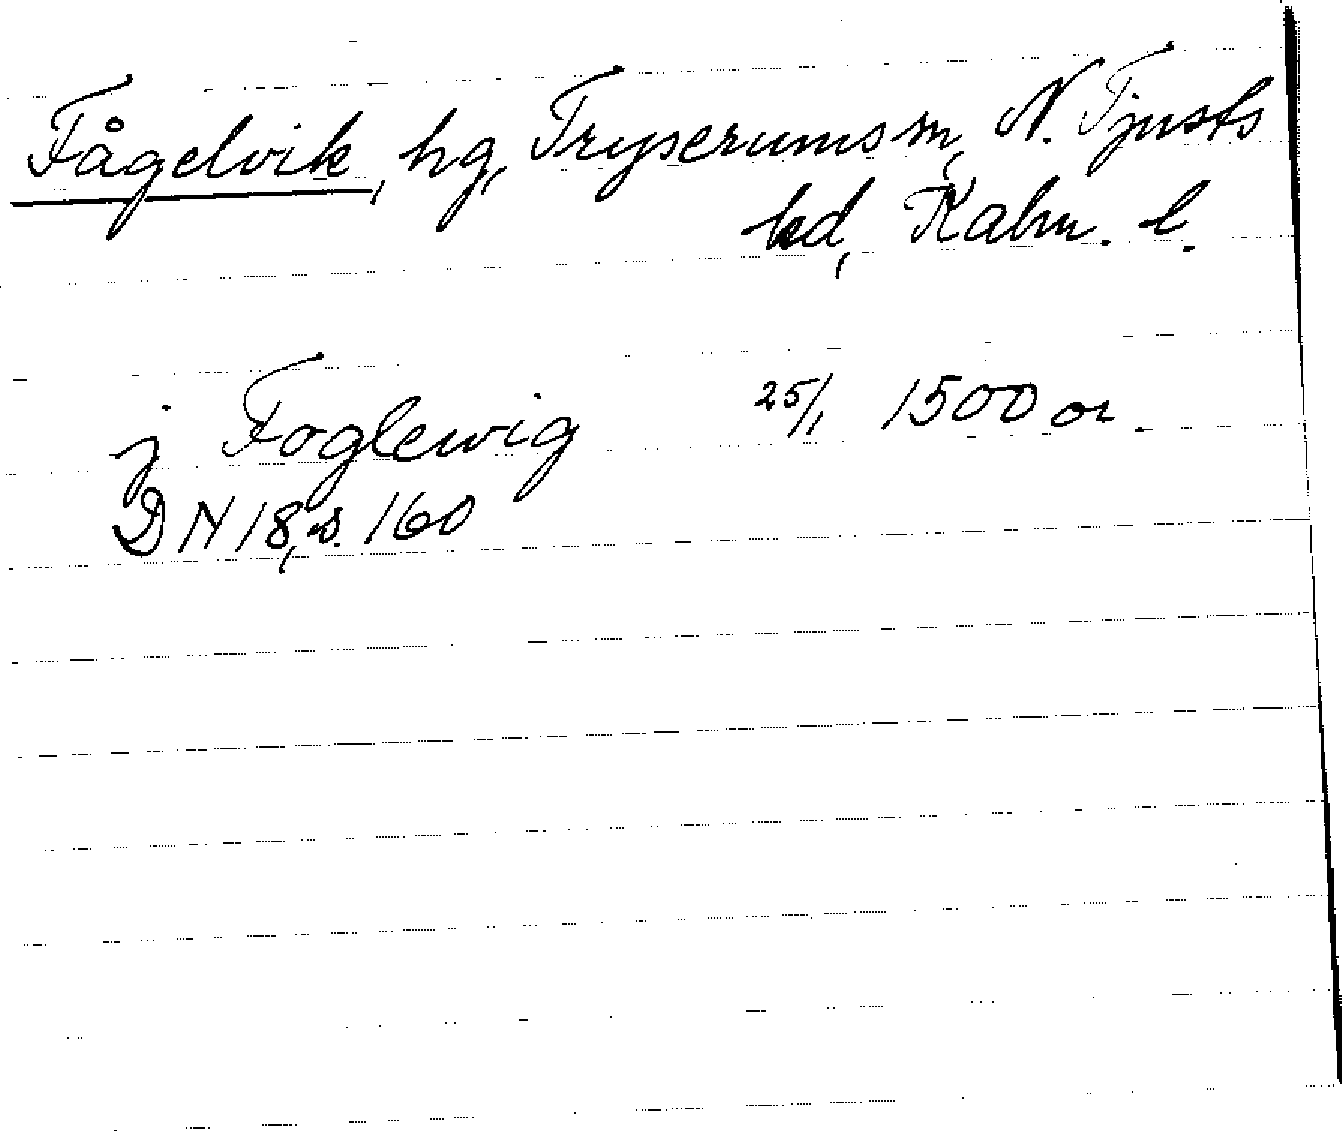 Fågelvik, hg, Tryserums sn, N. Tjusts
hd, Kalm. l.
j Foglewig 25/1 1500 or.
DN 18, s. 160